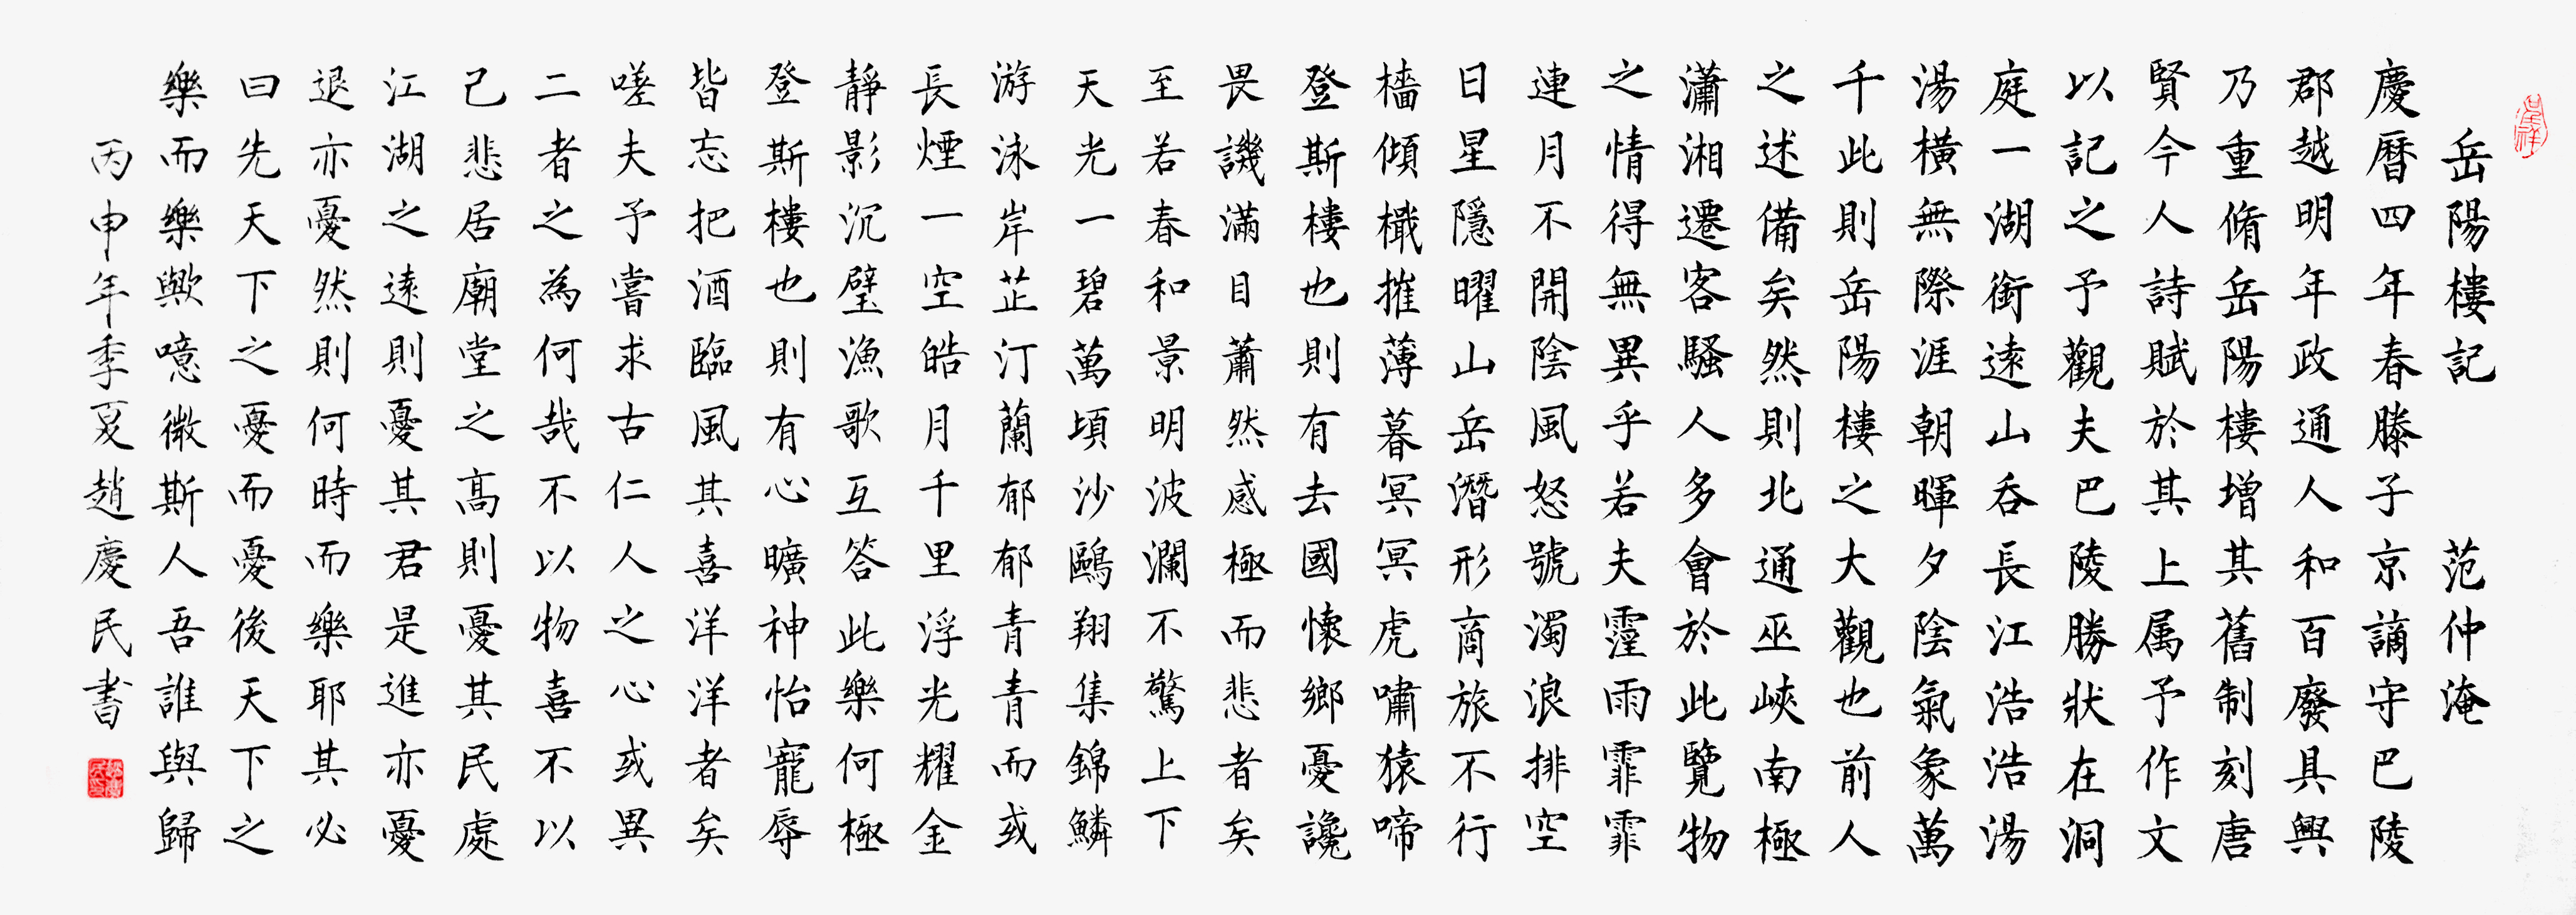 岳陽樓記 范仲淹
慶曆四年春滕子京謫守巴陵
郡越明年政通人和百廢具興
乃重脩岳陽樓增其舊制刻唐
賢今人詩賦於其上属予作文
以記之予觀夫巴陵勝狀在洞
庭一湖銜遠山吞長江浩浩湯
湯橫無際涯朝暉夕陰氣象萬
千此則岳陽樓之大觀也前人
之述備矣然則北通巫峽南極
瀟湘遷客騷人多會於此覽物
之情得無異乎若夫霪雨霏霏
連月不開陰風怒號濁浪排空
日星隱曜山岳潛形商旅不行
檣傾檝摧薄暮冥冥虎嘯猿啼
登斯樓也則有去國懷鄉憂讒
畏譏滿目蕭然感極而悲者矣
至若春和景明波瀾不驚上下
天光一碧萬頃沙鷗翔集錦鱗
游泳岸芷汀蘭郁郁青青而或
長煙一空皓月千里浮光耀金
靜影沉璧漁歌互答此樂何極
登斯樓也則有心曠神怡寵辱
皆忘把酒臨風其喜洋洋者矣
嗟夫予嘗求古仁人之心或異
二者之為何哉不以物喜不以
己悲居廟堂之高則憂其民處
江湖之遠則憂其君是進亦憂
退亦憂然則何時而樂耶其必
曰先天下之憂而憂後天下之
樂而樂歟噫微斯人吾誰與歸
丙申年季夏趙慶民書